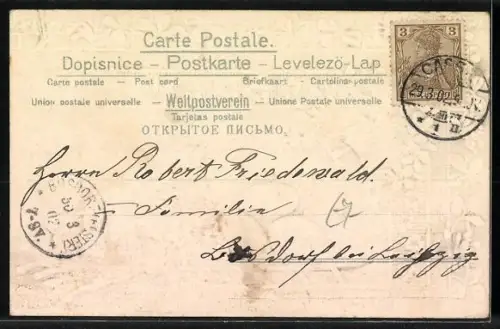 Carte Postale.
Dopisnice – Postkarte – Levelező-Lap
Carte postale — Post card Briefkaart — Cartolina postale
Union postale universelle — Weltpostverein — Unione Postale universale
Tarjetas postale
ОТКРЫТОЕ ПИСЬМО.
3 3
CASSEL
29.3.02
* 1 n.
Herrn Robert Friedewald.
Familie
bei Leipzig
30 3
02
7-8V.